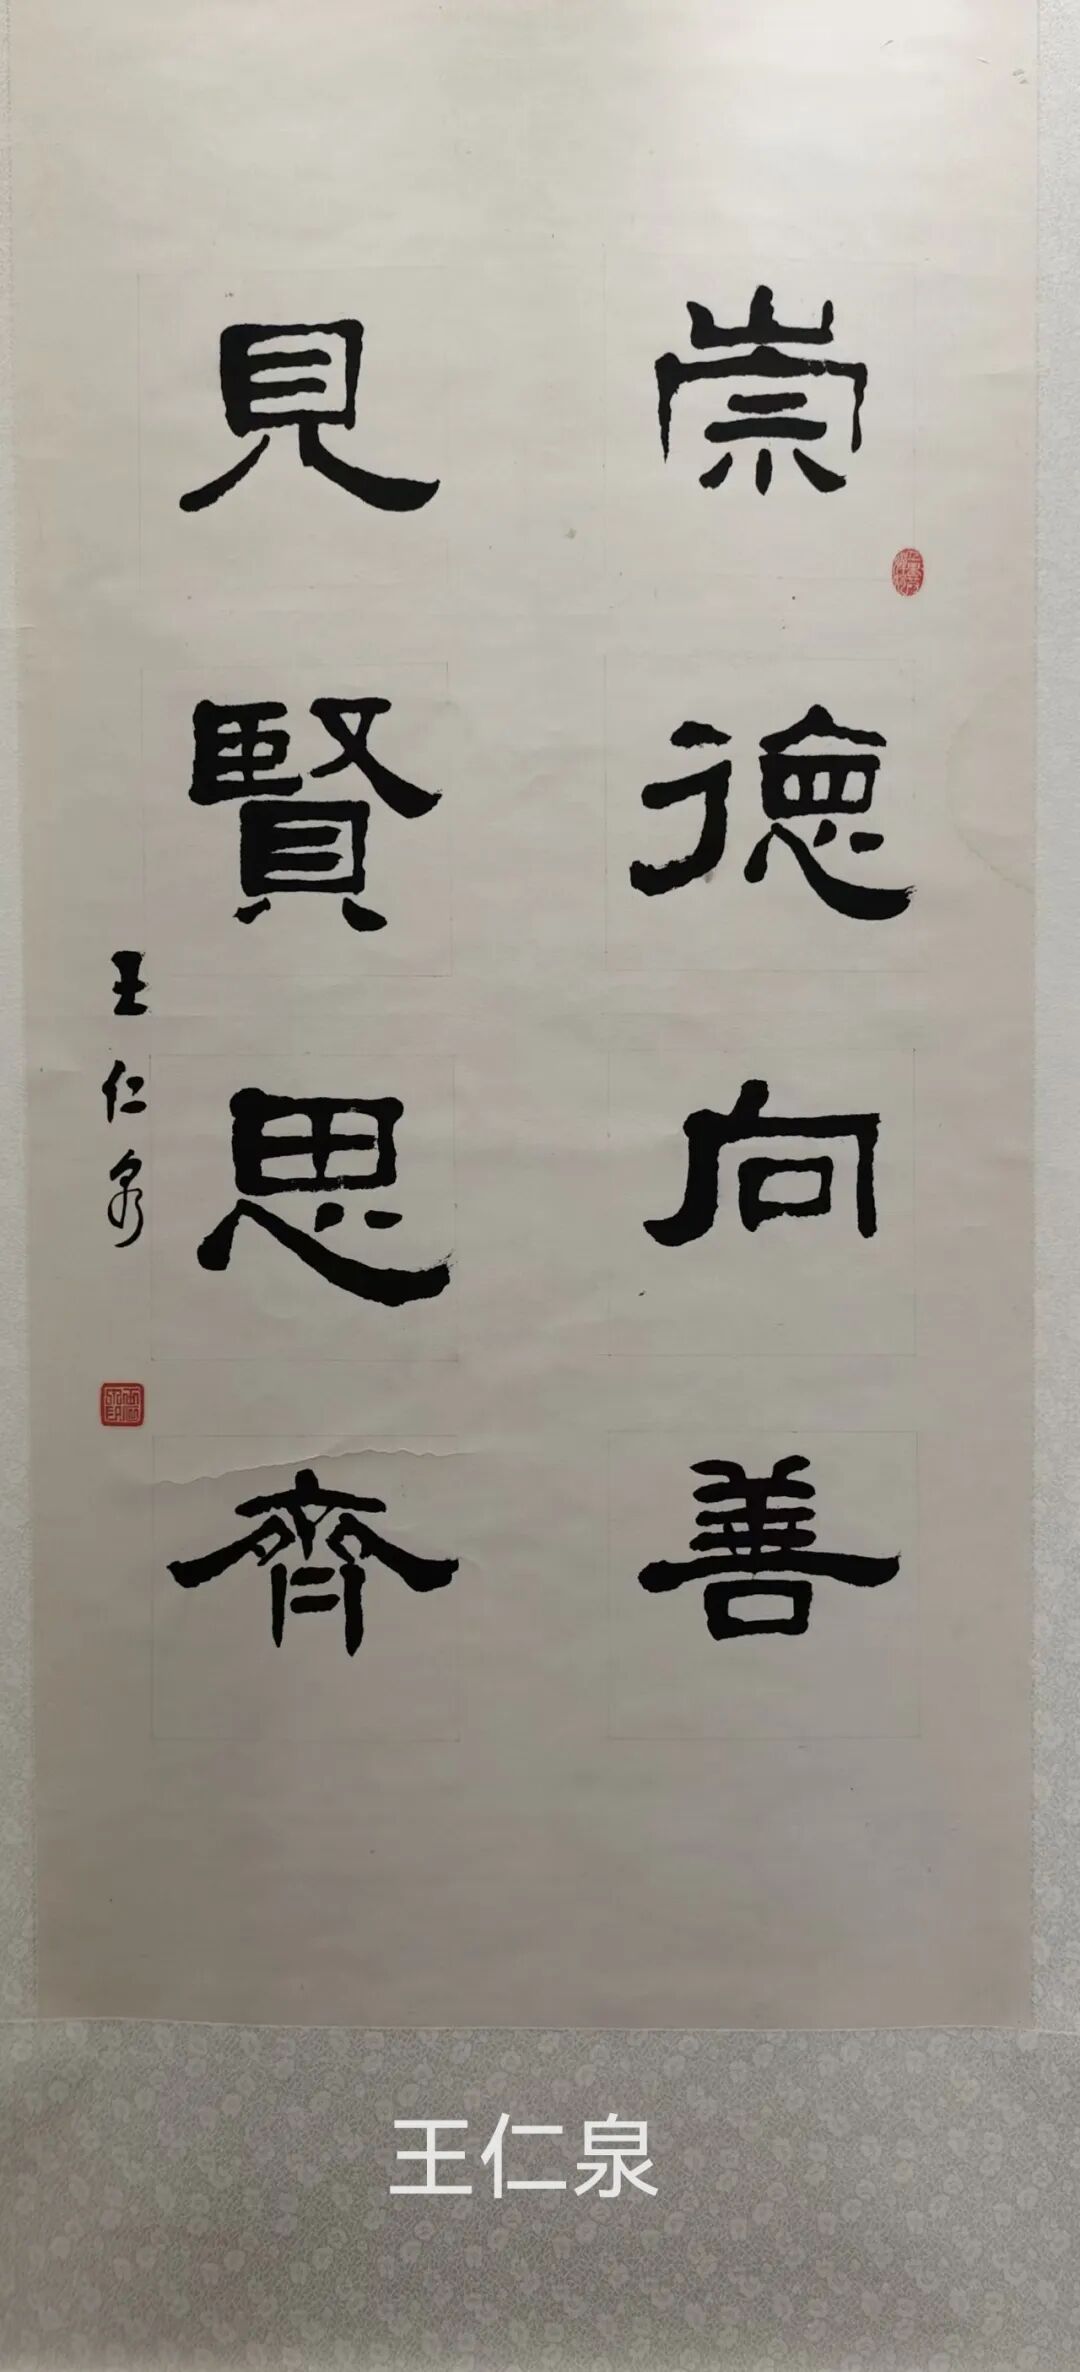 崇德向善
見賢思齊
王仁泉
王仁泉